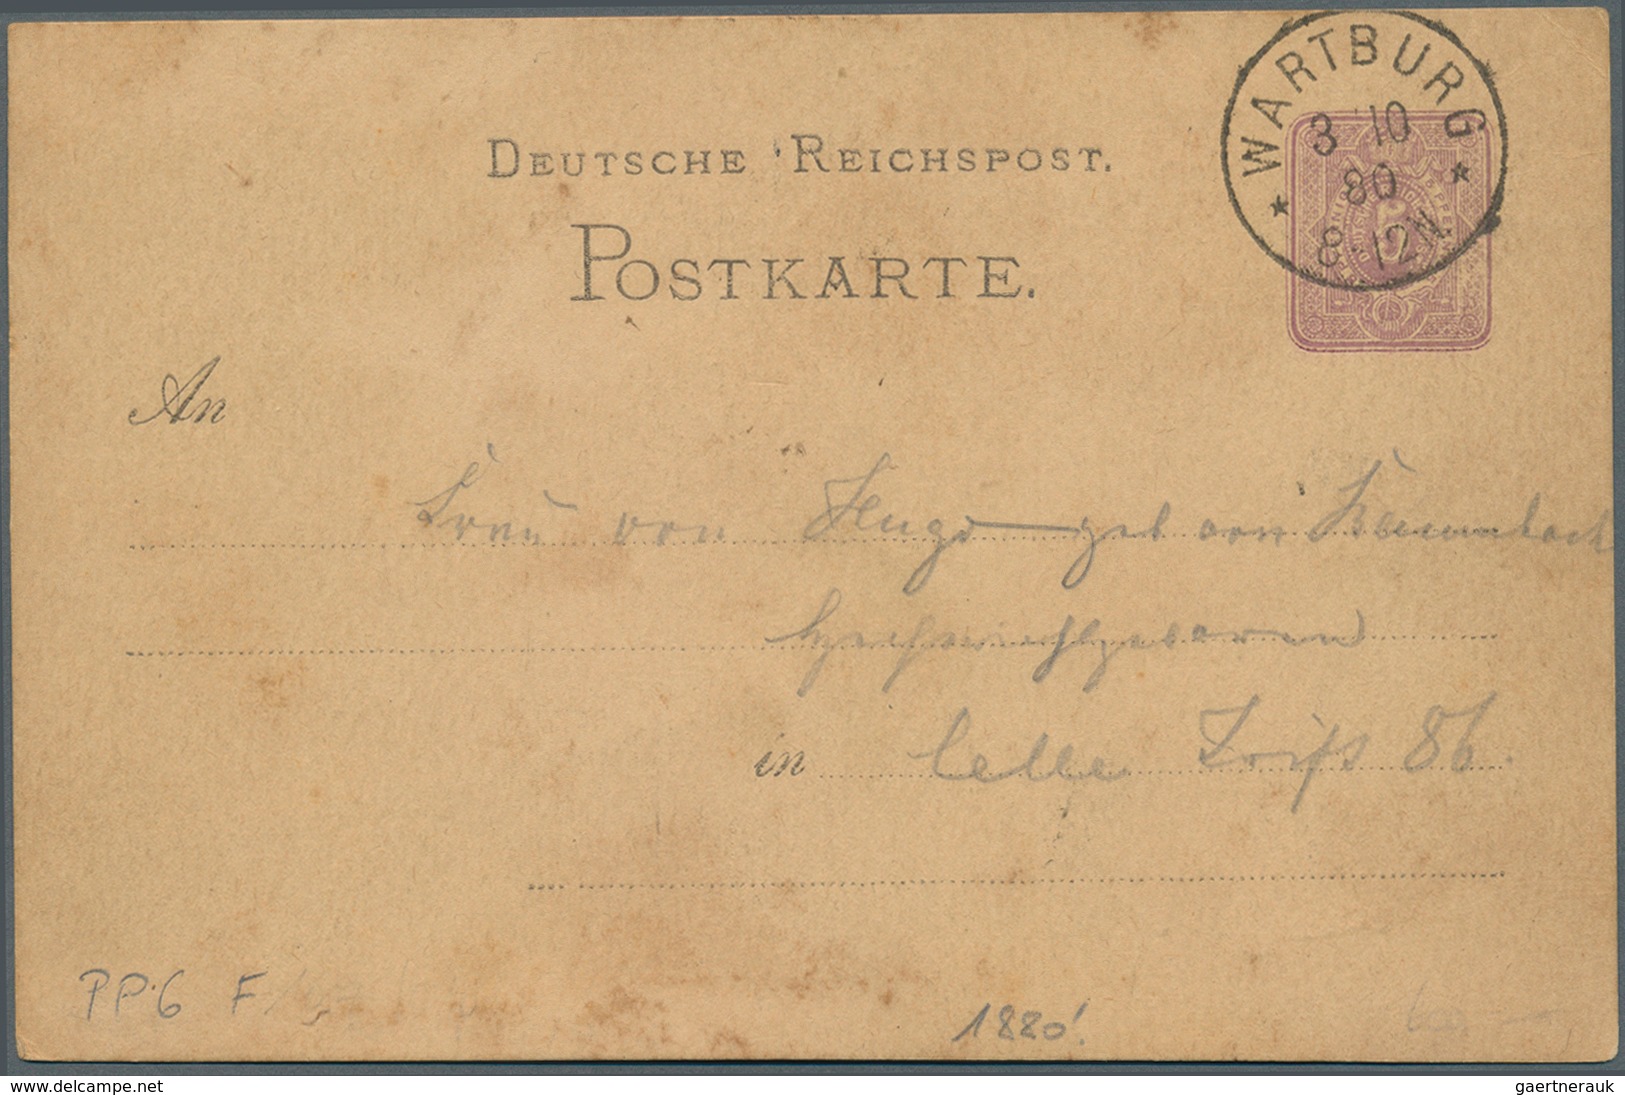 WARTBURG
3 10
80
8-12N.
DEUTSCHE REICHSPOST.
POSTKARTE.
An
von Hugo geb von
Hochwohlgeboren
in Celle Trift 86.
PP6 F
1880!
www.delcampe.net
gaertnerauk